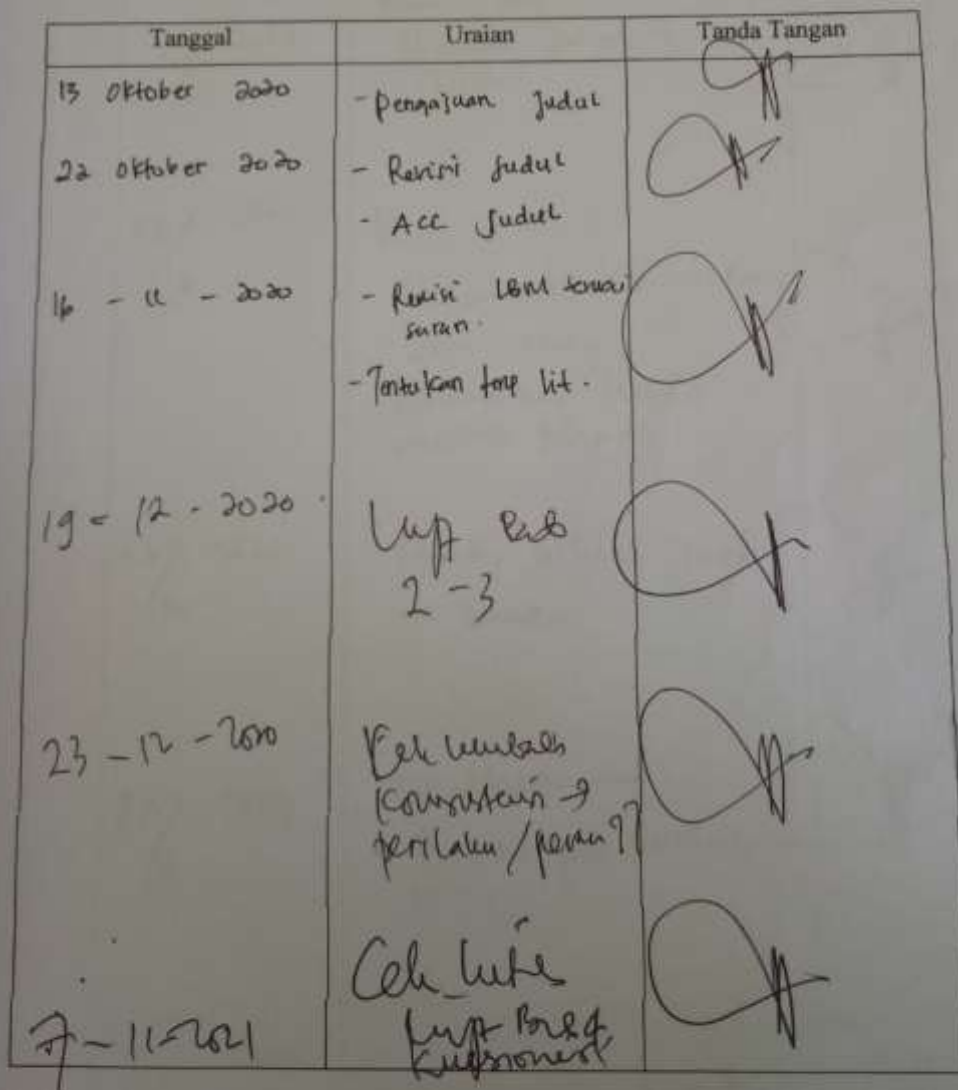 Tanggal Uraian Tanda Tangan
13 Oktober 2020 - Pengajuan Judul
22 Oktober 2020 - Revisi Judul
- ACC Judul
16 - 11 - 2020 - Revisi LBM sesuai
saran.
- Tentukan lit.
19 - 12 - 2020
2-3
23-12-2020 Cek kembali
konsistensi →
perilaku / peran ??
7-11-2021 Cek
Kuesioner